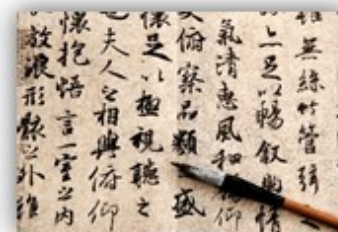 雖無絲竹管弦之
亦足以暢叙幽情
氣清惠風和暢仰
俯察品類盛
懷足以極視聽之
也夫人之相與俯仰
懷抱悟言一室之內
放浪形骸之外雖